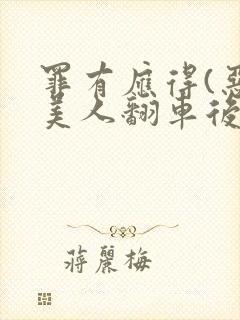 罪有應得(惡
美人翻車後
蔣麗梅